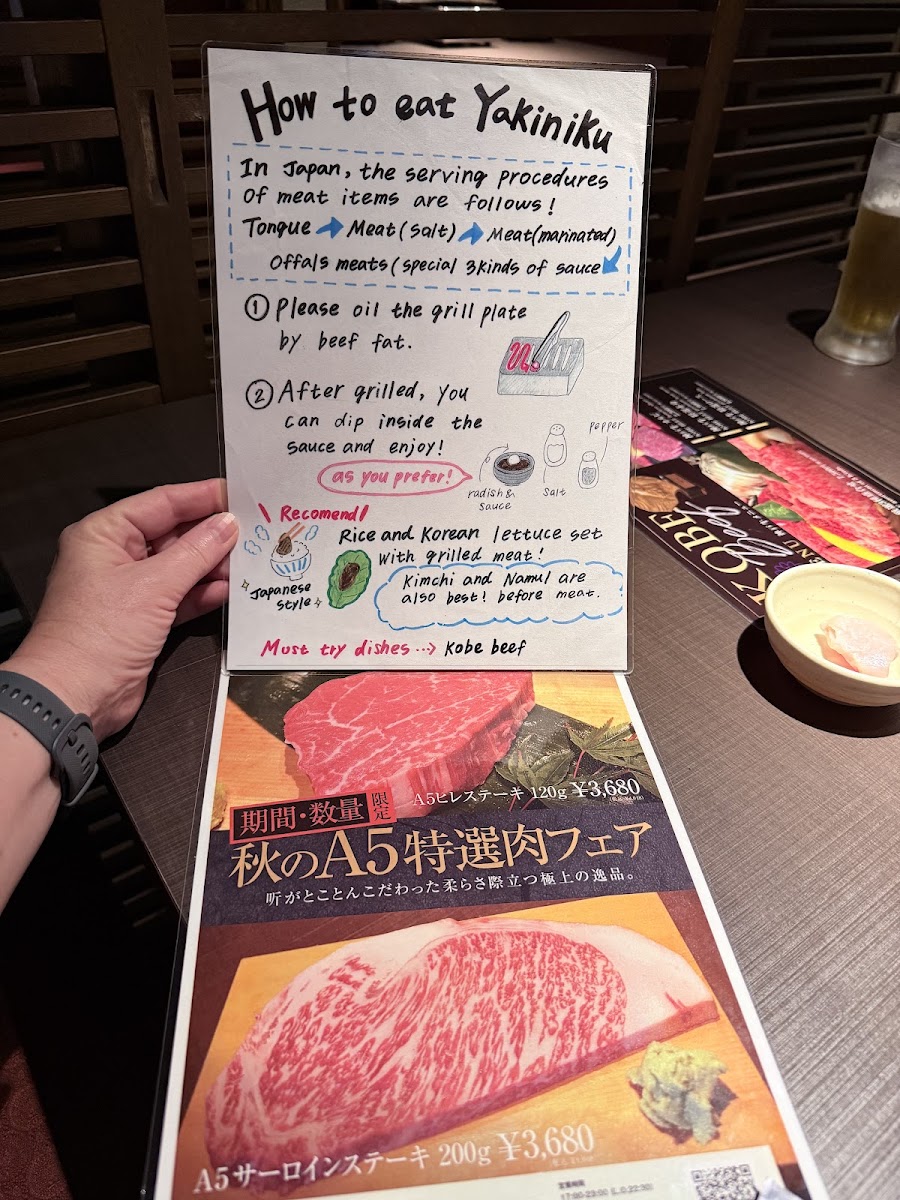 How to eat Yakiniku
In Japan, the serving procedures
of meat items are follows!
Tongue ➡ Meat (salt) ➡ Meat (marinated)
Offals meats (special 3kinds of sauce
① Please oil the grill plate
by beef fat.
② After grilled, you
can dip inside the
sauce and enjoy!
as you prefer!
radish &
sauce
salt
pepper
\ Recomend /
Rice and Korean lettuce set
with grilled meat!
Japanese
style
Kimchi and Namul are
also best! before meat.
Must try dishes ···> Kobe beef
A5ヒレステーキ 120g ¥3,680
期間・数量限定
秋のA5特選肉フェア
听がとことんこだわった柔らさ際立つ極上の逸品。
A5サーロインステーキ 200g ¥3,680
営業時間
17:00-23:00 (L.O.22:30)
KOBE
Beef